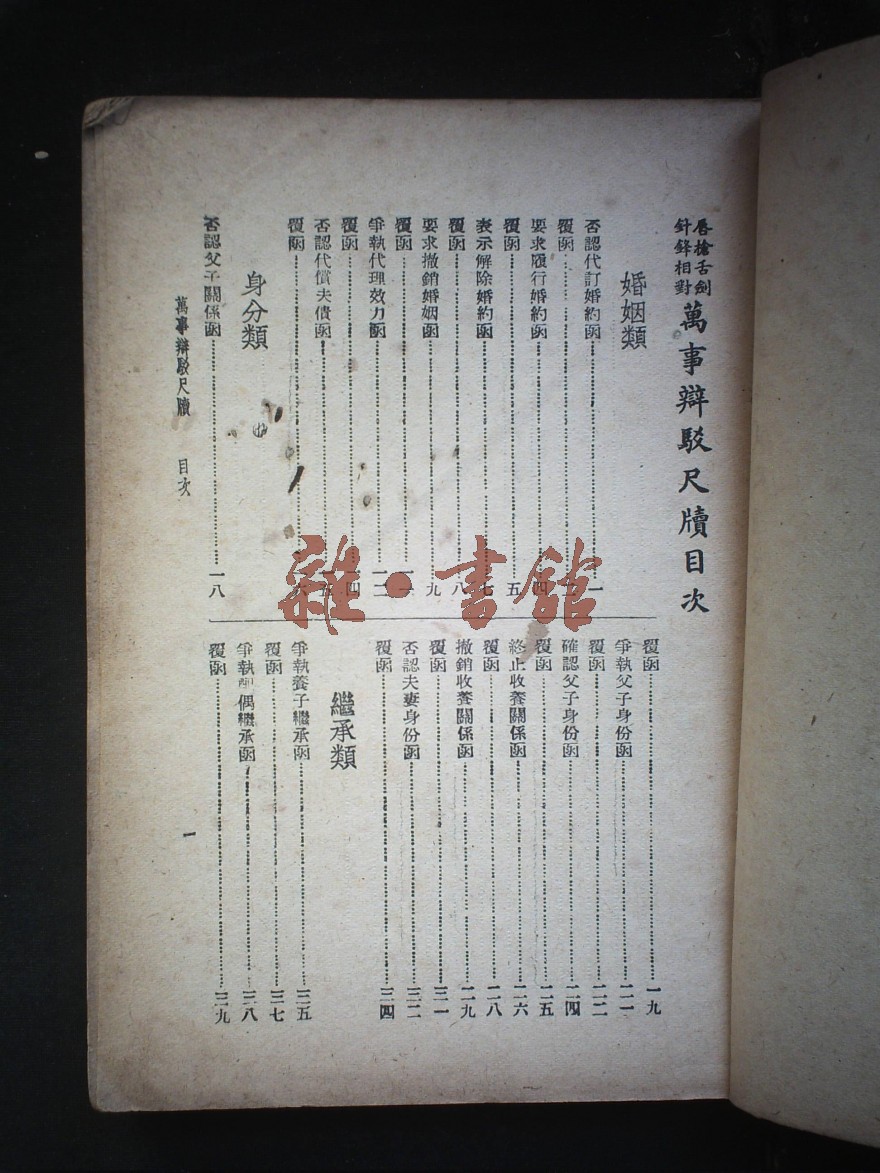 唇槍舌劍
針鋒相對
萬事辯駁尺牘目次
婚姻類
否認代訂婚約函……一
覆函……
要求履行婚約函……四
覆函……五
表示解除婚約函……七
覆函……八
要求撤銷婚姻函……九
覆函……一一
爭執代理效力函……一二
覆函……一四
否認代償夫債函……一五
覆函……一六
身分類
否認父子關係函……一八
覆函……一九
爭執父子身份函……二一
覆函……二二
確認父子身份函……二四
覆函……二五
終止收養關係函……二六
覆函……二八
撤銷收養關係函……二九
覆函……三一
否認夫妻身份函……三二
覆函……三四
繼承類
爭執養子繼承函……三五
覆函……三七
爭執配偶繼承函……三八
覆函……三九
萬事辯駁尺牘 目次 一
雜·書館